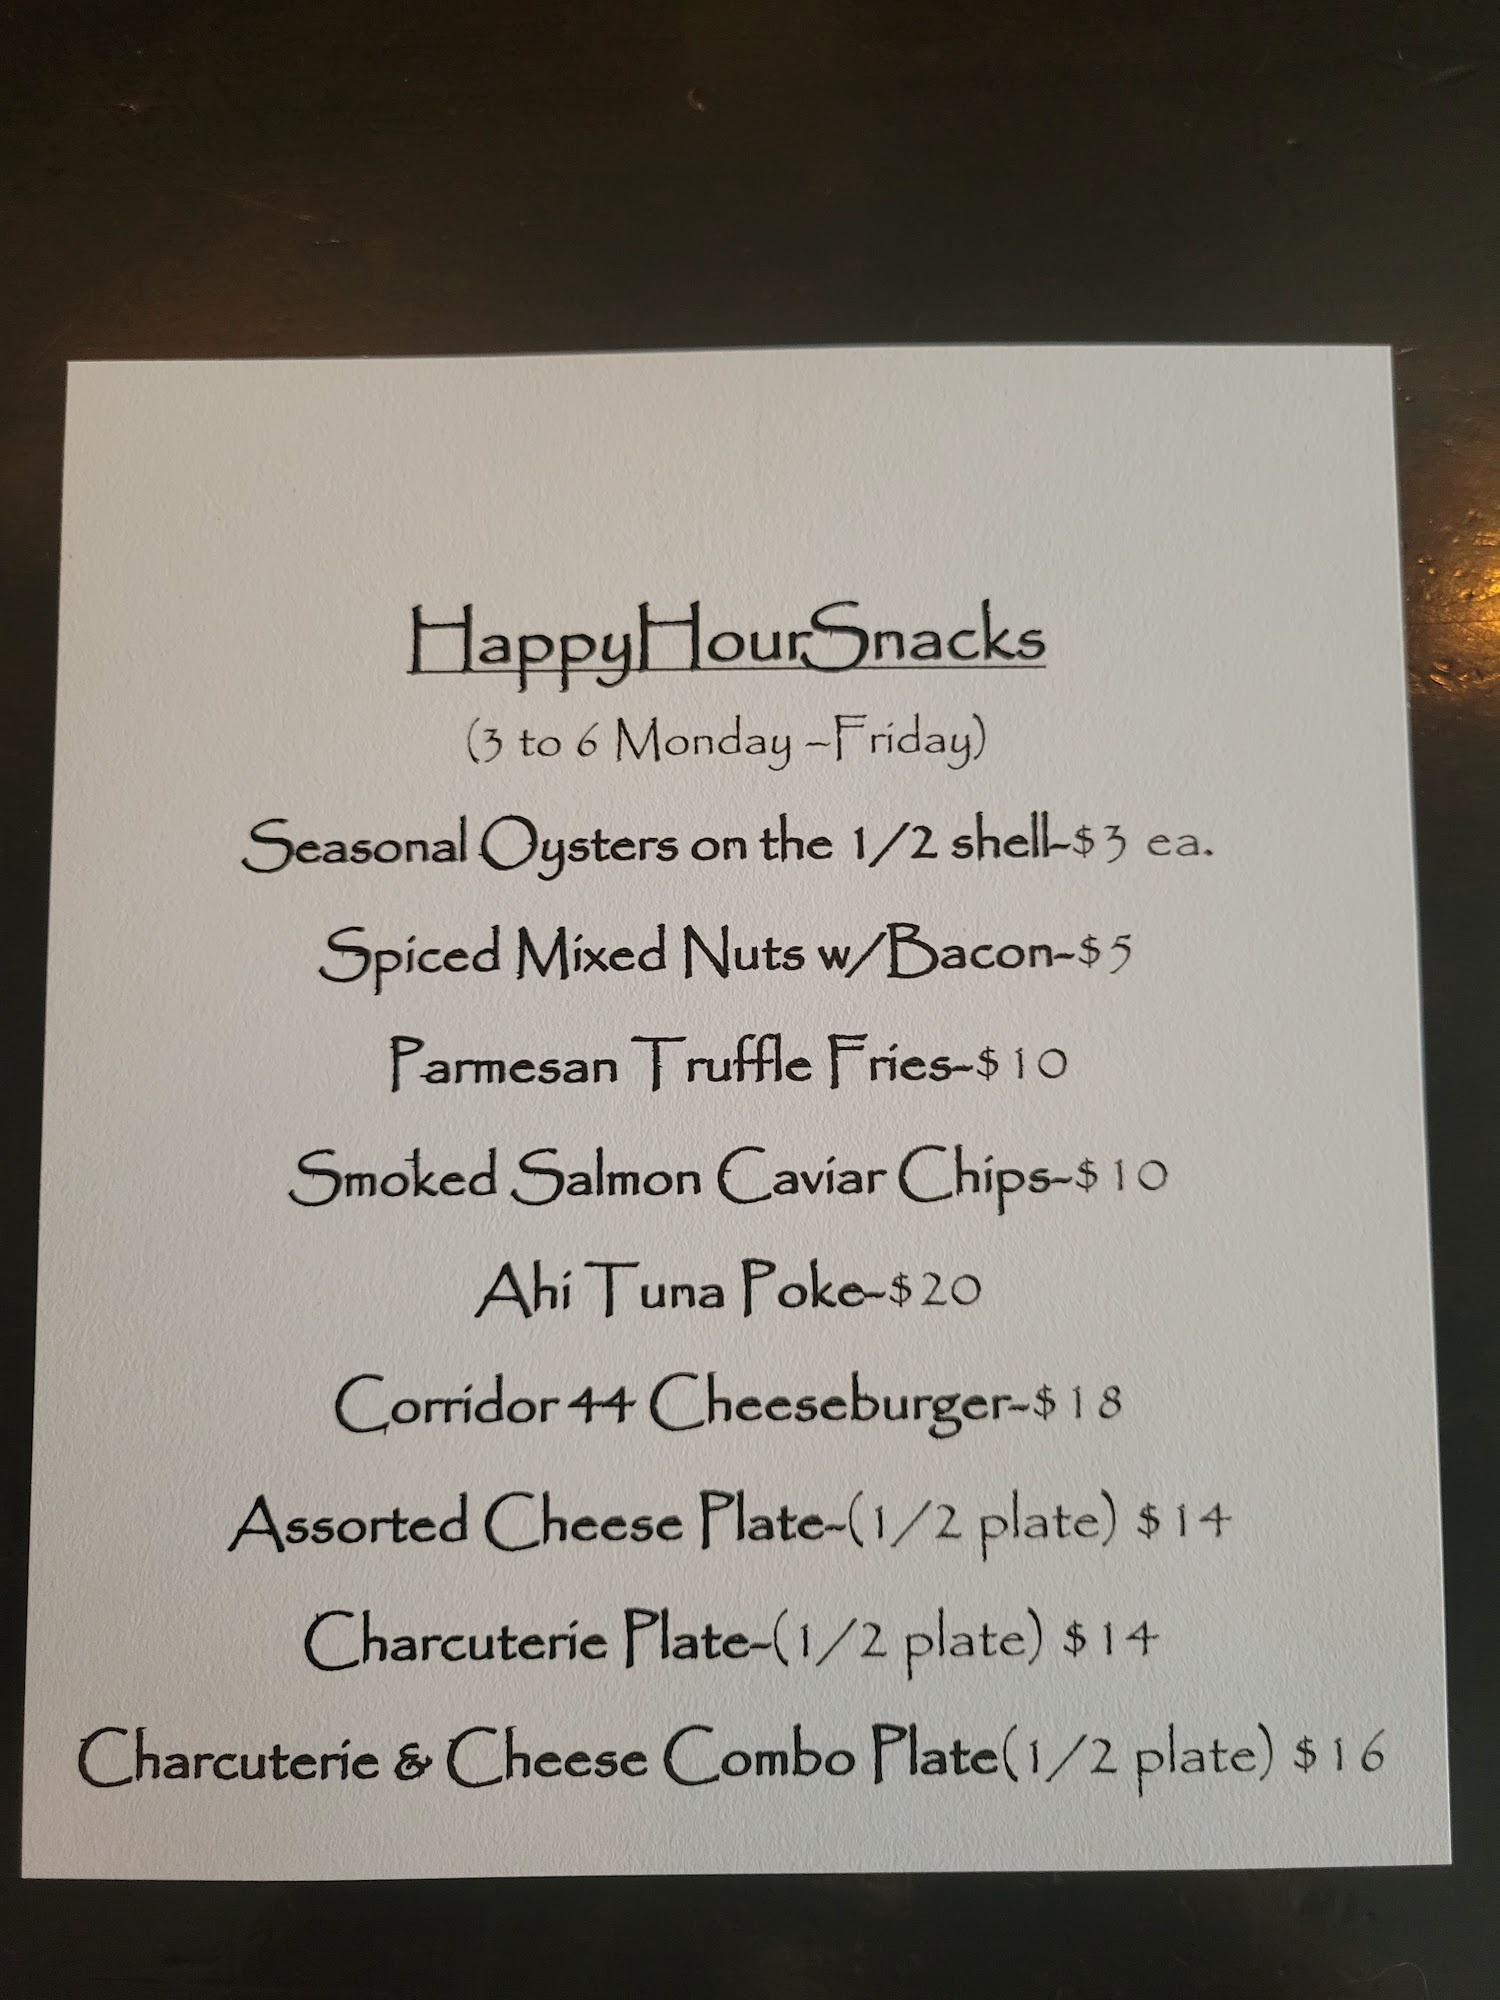 HappyHourSnacks
(3 to 6 Monday -Friday)
Seasonal Oysters on the 1/2 shell-$3 ea.
Spiced Mixed Nuts w/Bacon-$5
Parmesan Truffle Fries-$10
Smoked Salmon Caviar Chips-$10
Ahi Tuna Poke-$20
Corridor 44 Cheeseburger-$18
Assorted Cheese Plate-(1/2 plate) $14
Charcuterie Plate-(1/2 plate) $14
Charcuterie & Cheese Combo Plate(1/2 plate) $16